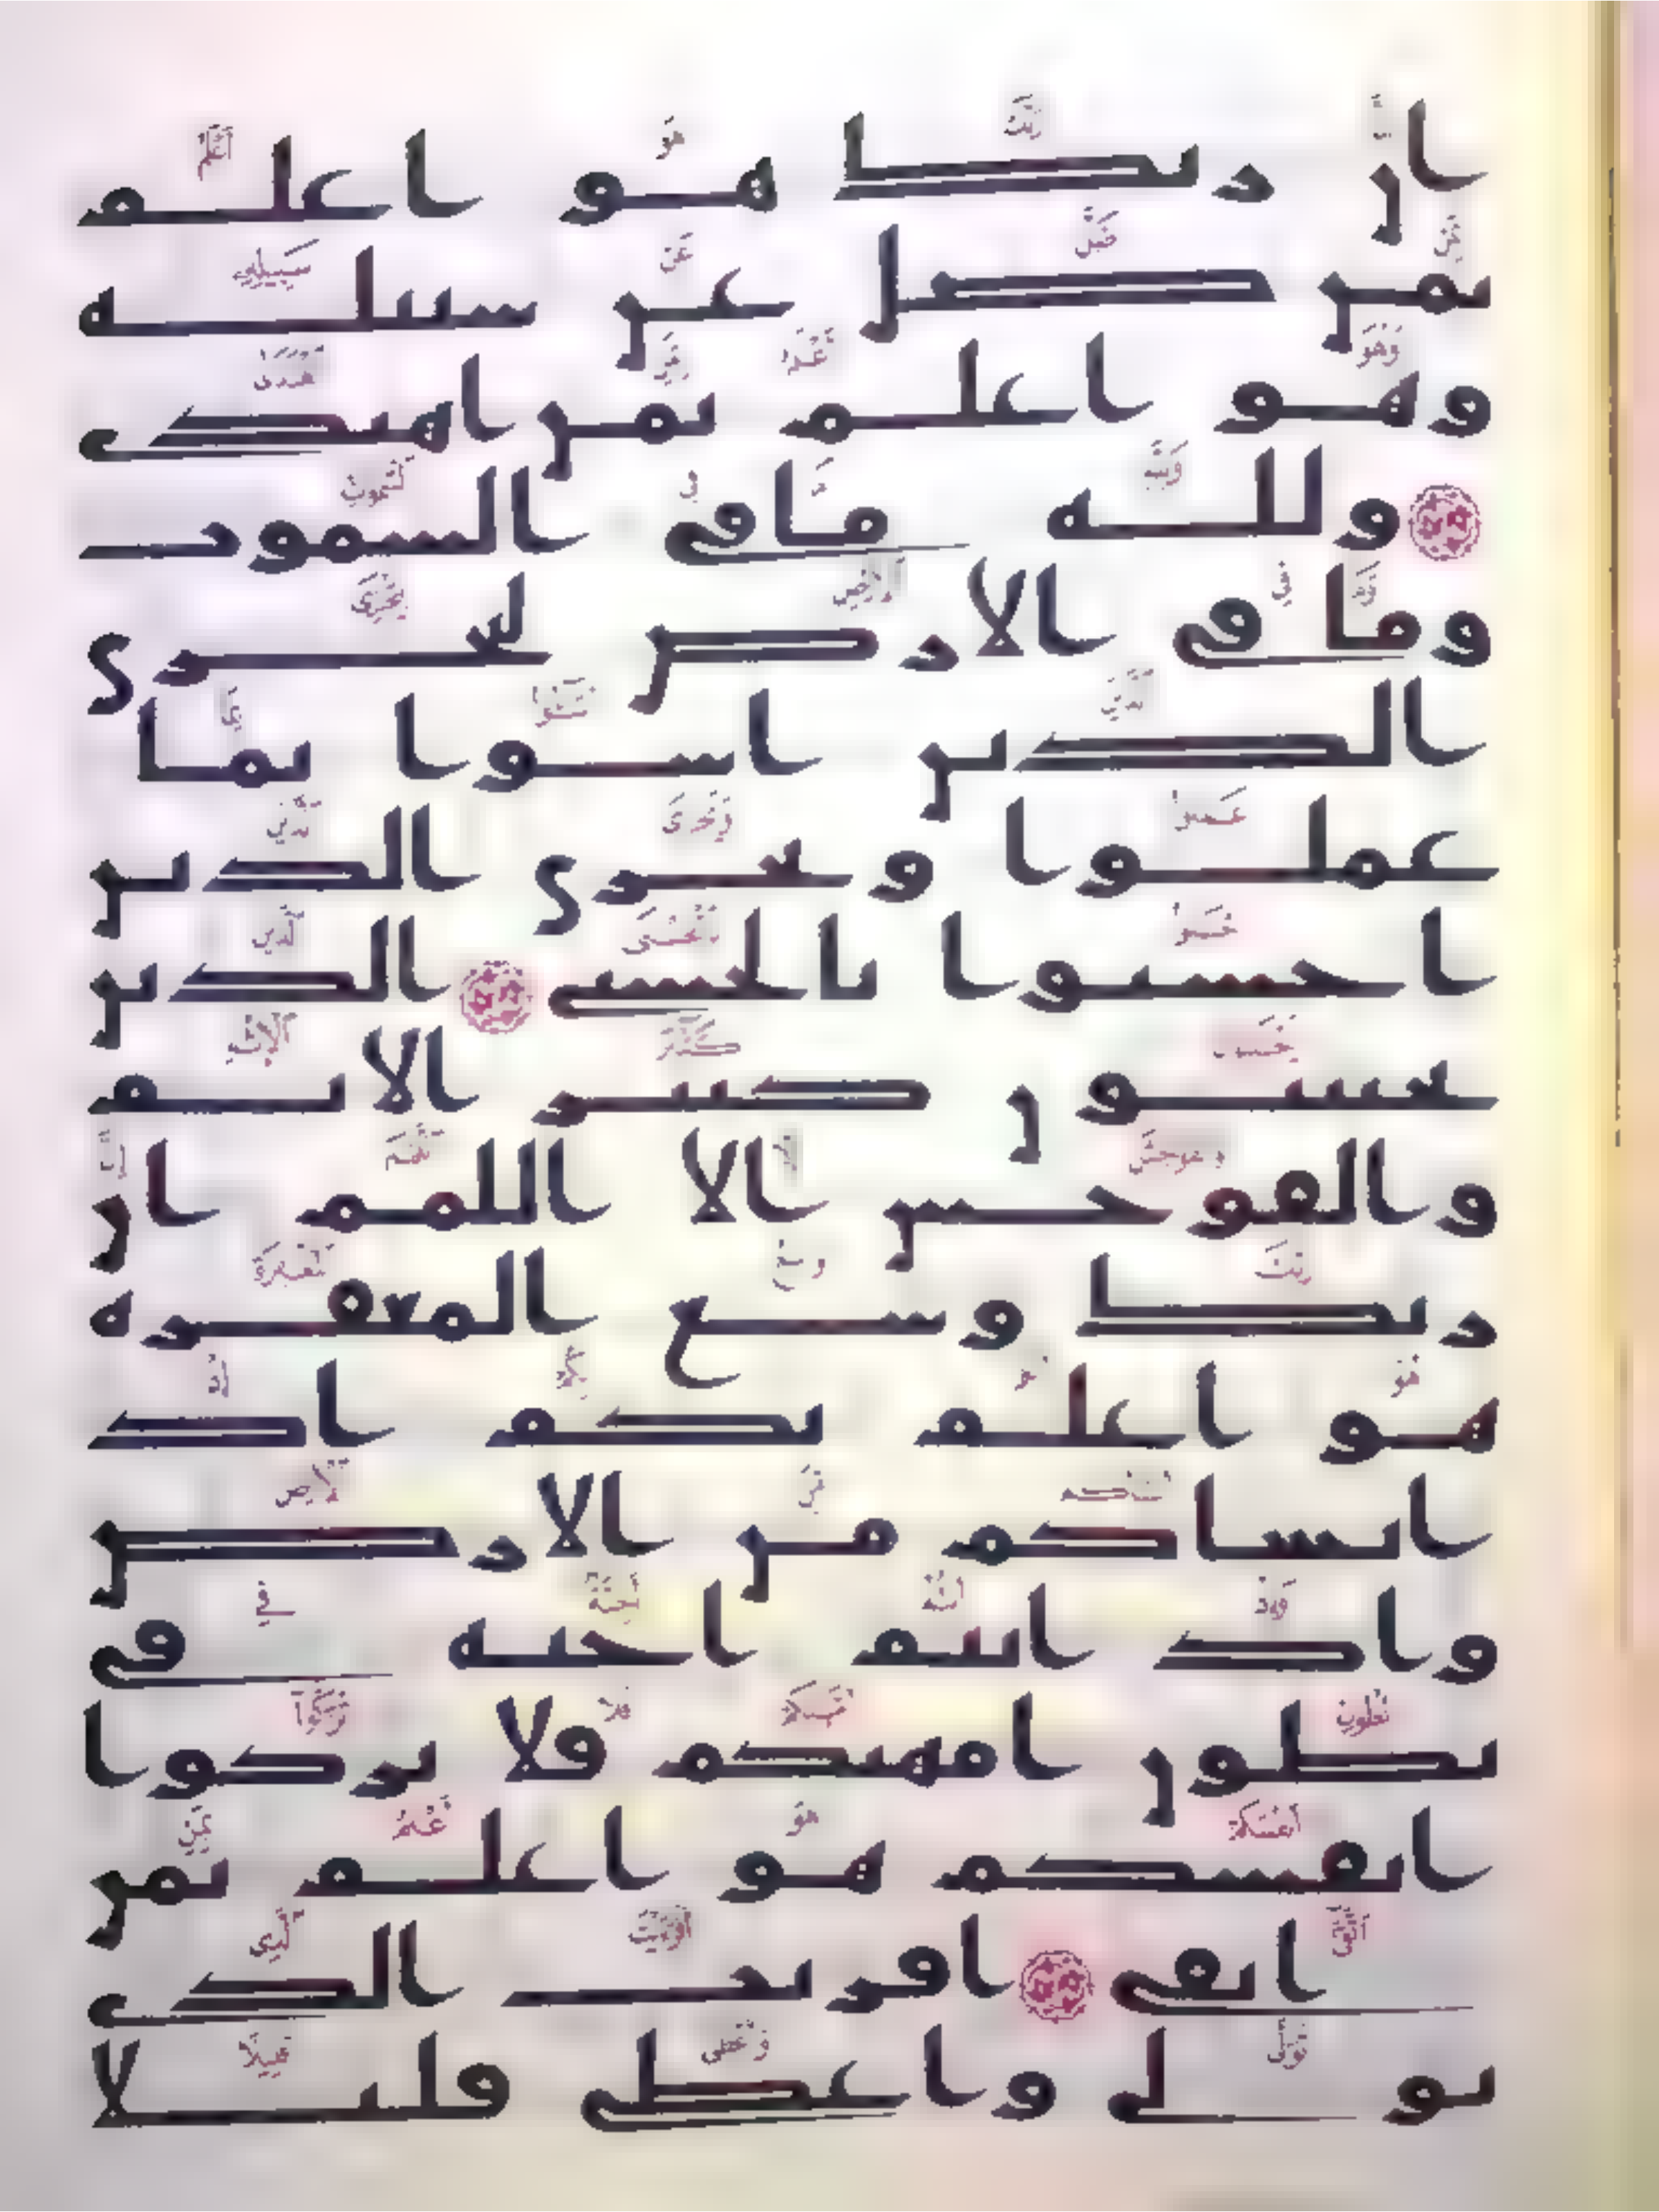 ان ربك هو اعلم
بمن ضل عن سبيله
وهو اعلم بمن اهتدى
ولله ما في السموت
وما في الارض ليجزي
الذين اسوا بما
عملوا ويجزي الذين
احسنوا بالحسنى الذين
يجتنبون كبير الاثم
والفوحش الا اللمم ان
ربك وسع المغفرة
هو اعلم بكم اذ
انشاكم من الارض
واذ انتم اجنة في
بطون امهتكم فلا تزكوا
انفسكم هو اعلم بمن
اتقى افريت الذي
تولى واعطى قليلا